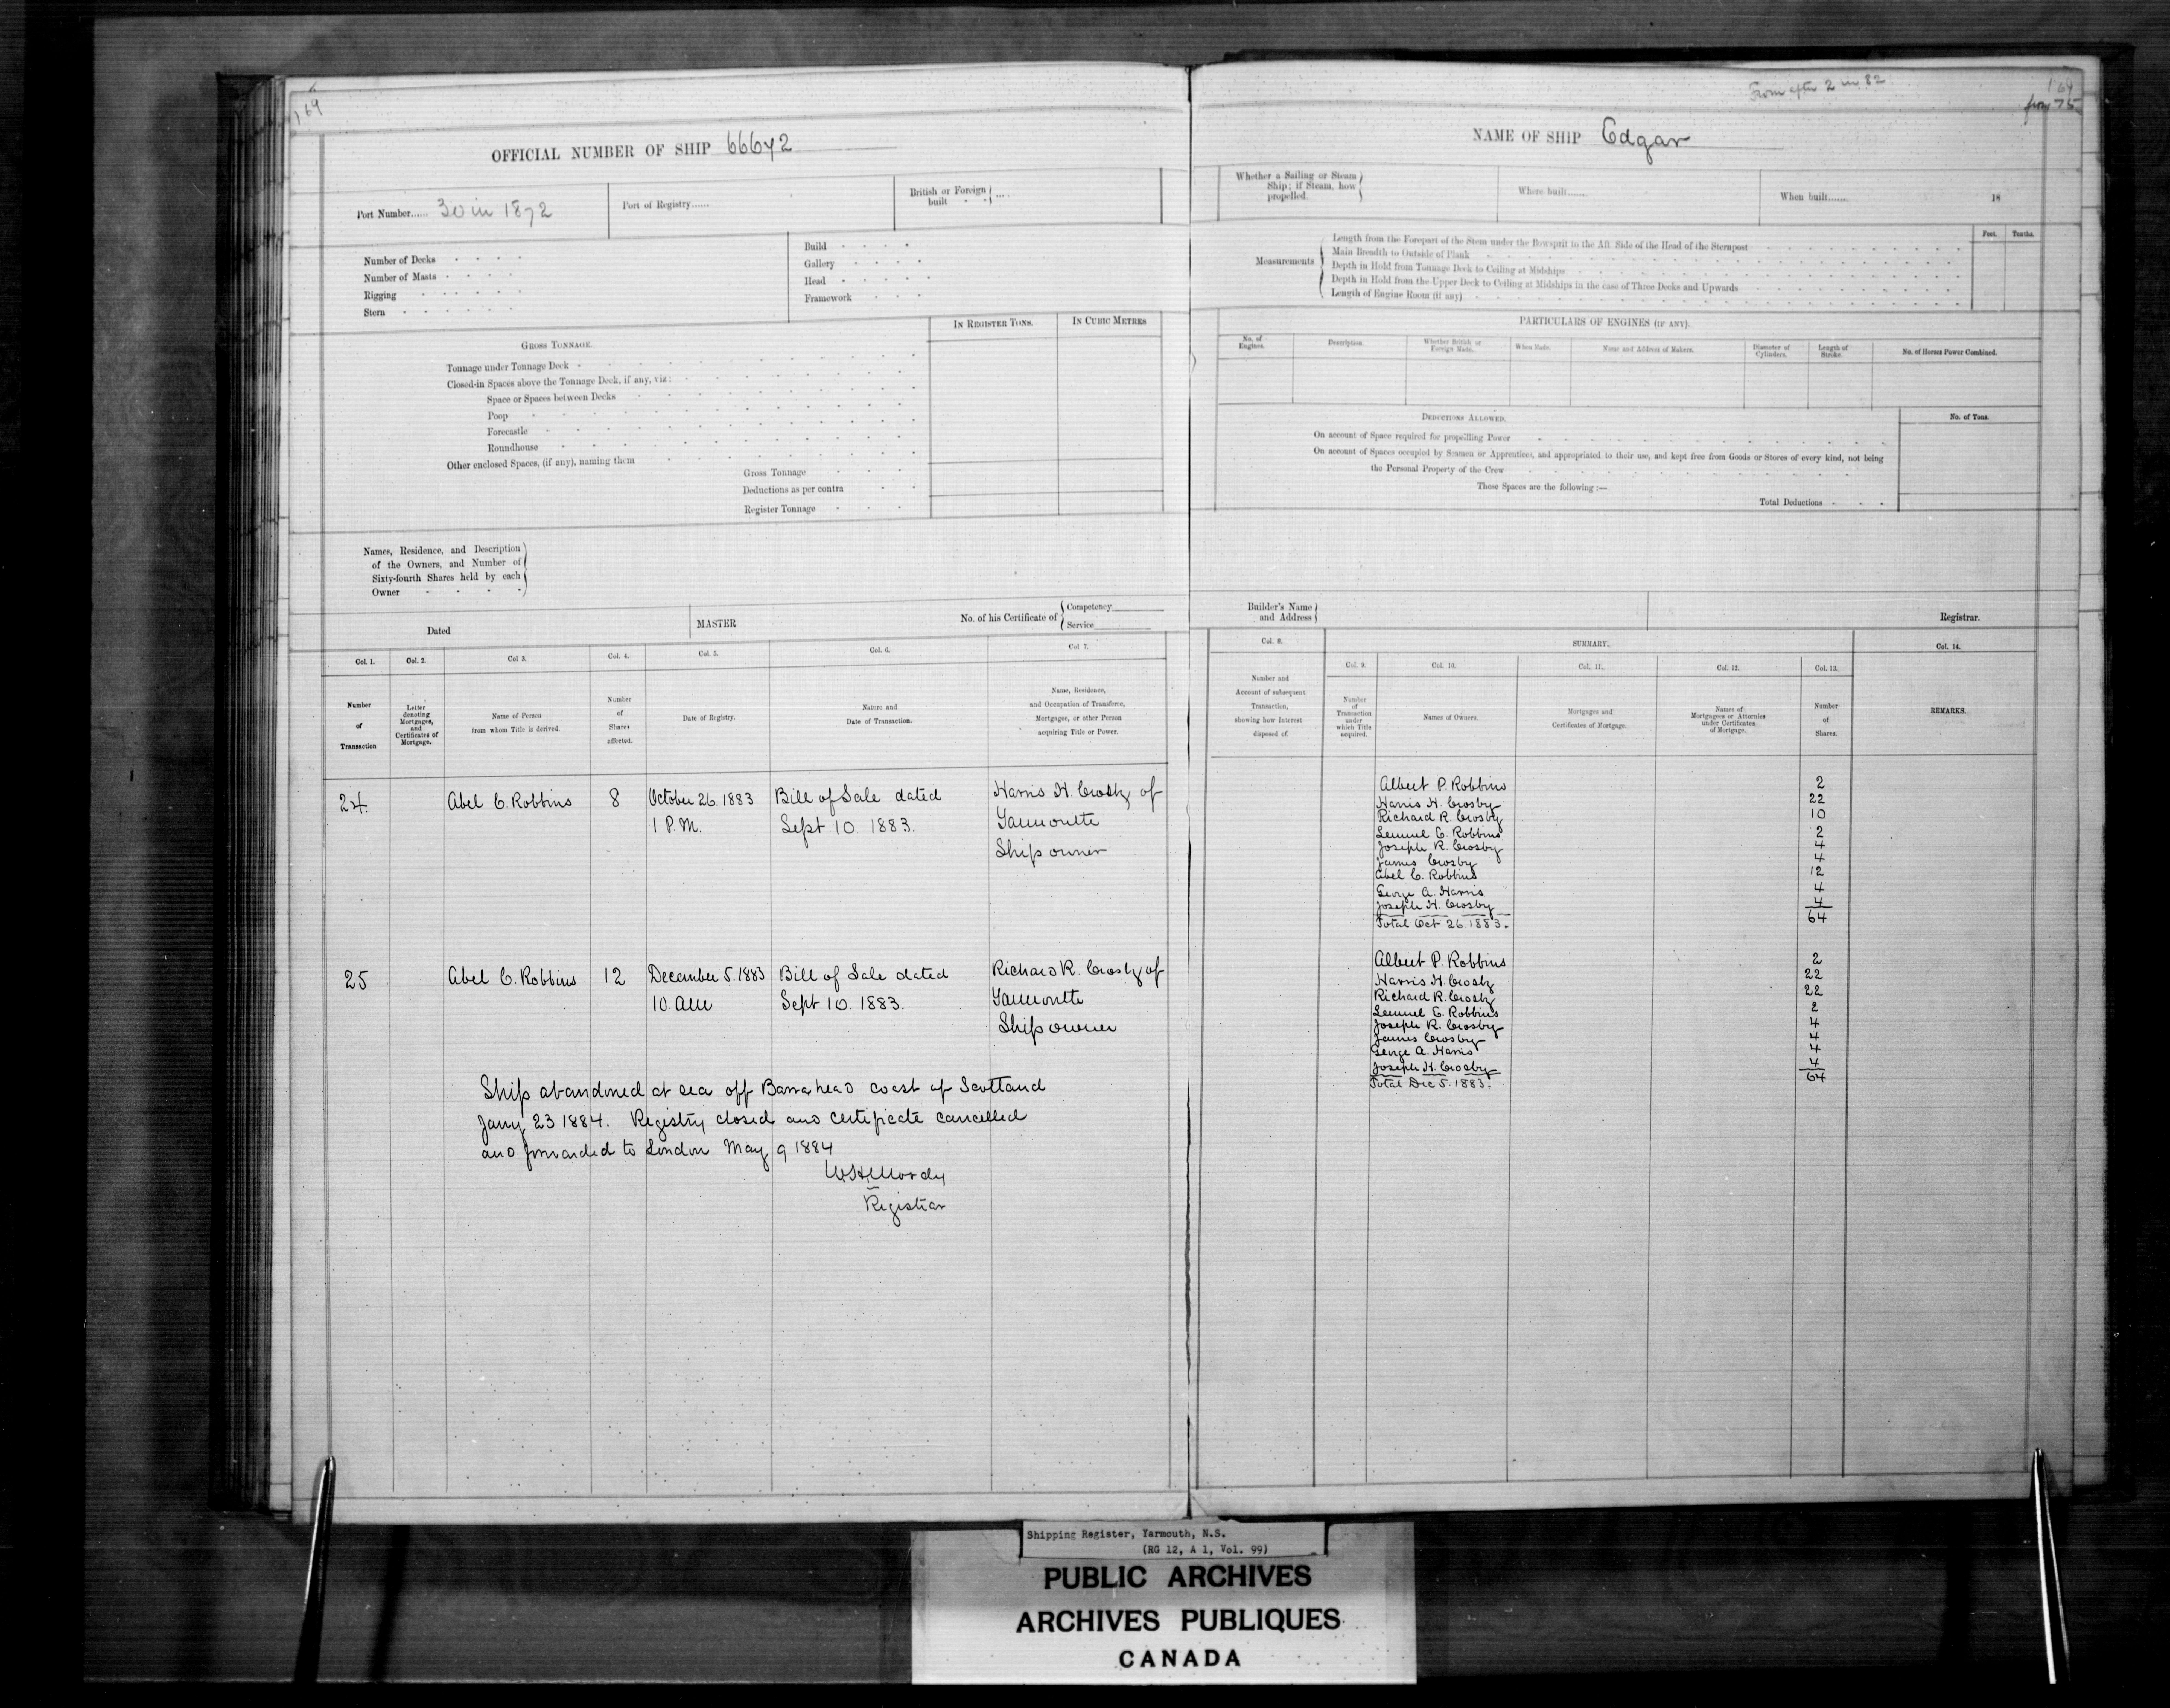 169
OFFICIAL NUMBER OF SHIP 66672
Port Number...... 30 in 1872
Port of Registry......
British or Foreign built ....
Number of Decks
Number of Masts
Rigging
Stern
Build
Gallery
Head
Framework
IN REGISTER TONS.
IN CUBIC METRES
GROSS TONNAGE.
Tonnage under Tonnage Deck
Closed-in Spaces above the Tonnage Deck, if any, viz:
Space or Spaces between Decks
Poop
Forecastle
Roundhouse
Other enclosed Spaces, (if any), naming them
Gross Tonnage
Deductions as per contra
Register Tonnage
Names, Residence, and Description
of the Owners, and Number of
Sixty-fourth Shares held by each
Owner
Dated
MASTER
No. of his Certificate of
Competency
Service
Col. 1.
Col. 2.
Col 3.
Col. 4.
Col. 5.
Col. 6.
Col 7.
Number of Transaction
Letter denoting Mortgages, and Certificates of Mortgage.
Name of Person from whom Title is derived.
Number of Shares affected.
Date of Registry.
Nature and Date of Transaction.
Name, Residence, and Occupation of Transferee, Mortgagee, or other Person acquiring Title or Power.
24. Abel C. Robbins 8 October 26. 1883 Bill of Sale dated Harris H. Crosby of
1 P.M. Sept 10. 1883. Yarmouth
Ship owner
25 Abel C. Robbins 12 December 5. 1883 Bill of Sale dated Richard R. Crosby of
10. am Sept 10. 1883. Yarmouth
Ship owner
Ship abandoned at sea off Barrahead coast of Scotland
Jany 23 1884. Registry closed and certificate cancelled
and forwarded to London May 9 1884
Registrar
From after 2 in 82
169
from 75
NAME OF SHIP Edgar
Whether a Sailing or Steam Ship; if Steam, how propelled.
Where built......
When built......
18
Measurements
Feet. Tenths.
Length from the Forepart of the Stem under the Bowsprit to the Aft Side of the Head of the Sternpost
Main Breadth to Outside of Plank
Depth in Hold from Tonnage Deck to Ceiling at Midships
Depth in Hold from the Upper Deck to Ceiling at Midships in the case of Three Decks and Upwards
Length of Engine Room (if any)
PARTICULARS OF ENGINES (IF ANY).
No. of Engines.
Description.
Whether British or Foreign Made.
When Made.
Name and Address of Makers.
Diameter of Cylinders.
Length of Stroke.
No. of Horses Power Combined.
DEDUCTIONS ALLOWED.
No. of Tons.
On account of Space required for propelling Power
On account of Spaces occupied by Seamen or Apprentices, and appropriated to their use, and kept free from Goods or Stores of every kind, not being
the Personal Property of the Crew
Those Spaces are the following :—
Total Deductions
Builder's Name and Address
Registrar.
Col. 8.
SUMMARY.
Col. 14.
Col. 9.
Col. 10.
Col. 11.
Col. 12.
Col. 13.
Number and Account of subsequent Transaction, showing how Interest disposed of.
Number of Transaction under which Title acquired.
Names of Owners.
Mortgages and Certificates of Mortgage.
Names of Mortgagees or Attornies under Certificates of Mortgage.
Number of Shares.
REMARKS.
Albert P. Robbins 2
Harris H. Crosby 22
Richard R. Crosby 10
Lemuel C. Robbins 2
Joseph R. Crosby 4
James Crosby 4
Abel C. Robbins 12
George A. Harris 4
Joseph H. Crosby 4
Total Oct 26. 1883. 64
Albert P. Robbins 2
Harris H. Crosby 22
Richard R. Crosby 22
Lemuel C. Robbins 2
Joseph R. Crosby 4
James Crosby 4
George A. Harris 4
Joseph H. Crosby 4
Total Dec 5. 1883. 64
Shipping Register, Yarmouth, N.S.
(RG 12, A 1, Vol. 99)
PUBLIC ARCHIVES
ARCHIVES PUBLIQUES
CANADA